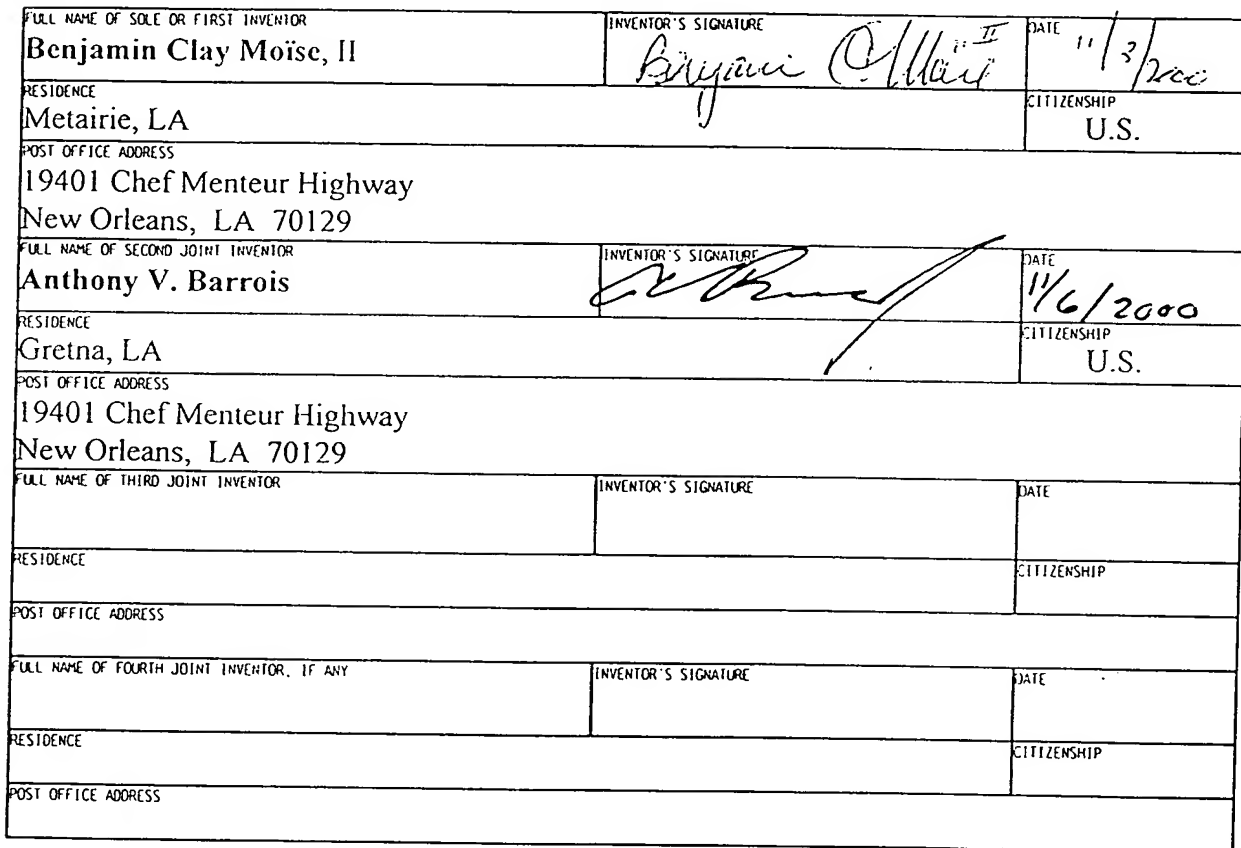 FULL NAME OF SOLE OR FIRST INVENTOR
Benjamin Clay Moïse, II
INVENTOR'S SIGNATURE
Benjamin C. Moïse II
DATE
11/3/2000
RESIDENCE
Metairie, LA
CITIZENSHIP
U.S.
POST OFFICE ADDRESS
19401 Chef Menteur Highway
New Orleans, LA 70129
FULL NAME OF SECOND JOINT INVENTOR
Anthony V. Barrois
INVENTOR'S SIGNATURE
DATE
11/6/2000
RESIDENCE
Gretna, LA
CITIZENSHIP
U.S.
POST OFFICE ADDRESS
19401 Chef Menteur Highway
New Orleans, LA 70129
FULL NAME OF THIRD JOINT INVENTOR
INVENTOR'S SIGNATURE
DATE
RESIDENCE
CITIZENSHIP
POST OFFICE ADDRESS
FULL NAME OF FOURTH JOINT INVENTOR, IF ANY
INVENTOR'S SIGNATURE
DATE
RESIDENCE
CITIZENSHIP
POST OFFICE ADDRESS